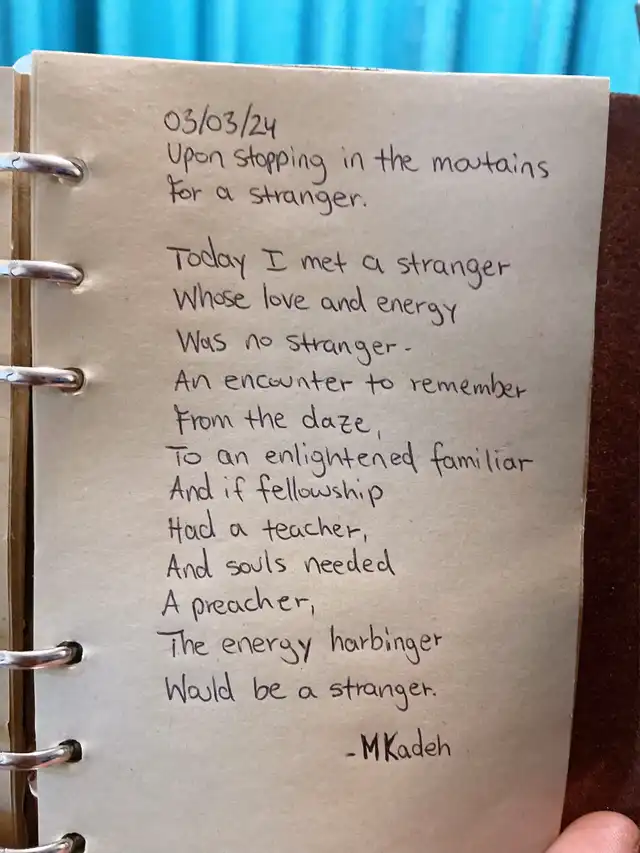 03/03/24
Upon stopping in the moutains
For a stranger.
Today I met a stranger
Whose love and energy
Was no stranger-
An encounter to remember
From the daze,
To an enlightened familiar
And if fellowship
Had a teacher,
And souls needed
A preacher,
The energy harbinger
Would be a stranger.
-MKadeh